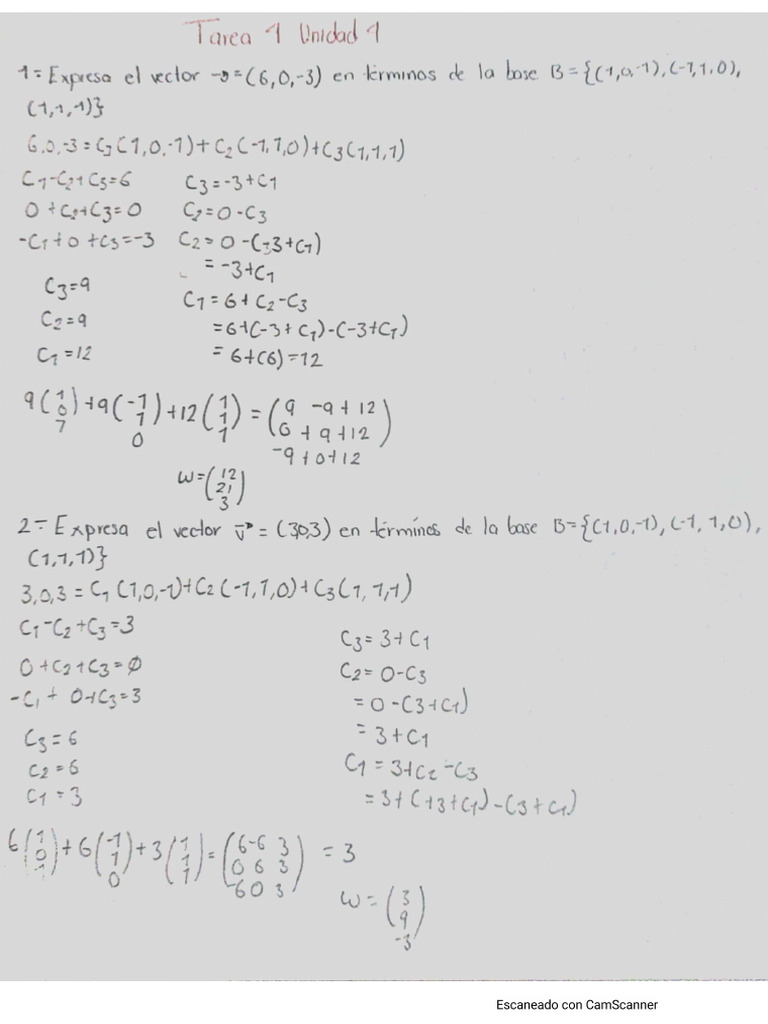 Tarea 1 Unidad 1
1= Expresa el vector v=(6,0,-3) en términos de la base B={(1,0,-1),(-1,1,0),
(1,1,1)}
6,0,-3 = C1(1,0,-1)+C2(-1,1,0)+C3(1,1,1)
C1-C2+C3=6
0+C2+C3=0
-C1+0+C3=-3
C3=9
C2=9
C1=12
C3=-3+C1
C2=0-C3
C2=0-(-3+C1)
=-3+C1
C1=6+C2-C3
=6+(-3+C1)-(-3+C1)
=6+(6)=12
9(1 0 7)+9(-1 1 0)+12(1 1 1)=(9 -9+12
0+9+12
-9+0+12)
w=(12 21 3)
2= Expresa el vector v=(3,0,3) en términos de la base B={(1,0,-1),(-1,1,0),
(1,1,1)}
3,0,3=C1(1,0,-1)+C2(-1,1,0)+C3(1,1,1)
C1-C2+C3=3
0+C2+C3=0
-C1+0+C3=3
C3=6
C2=6
C1=3
C3=3+C1
C2=0-C3
=0-(3+C1)
=3+C1
C1=3+C2-C3
=3+(+3+C1)-(3+C1)
6(1 0 -1)+6(-1 1 0)+3(1 1 1)=(6-6 3
0 6 3
-6 0 3)
=3
w=(3 9 -3)
Escaneado con CamScanner